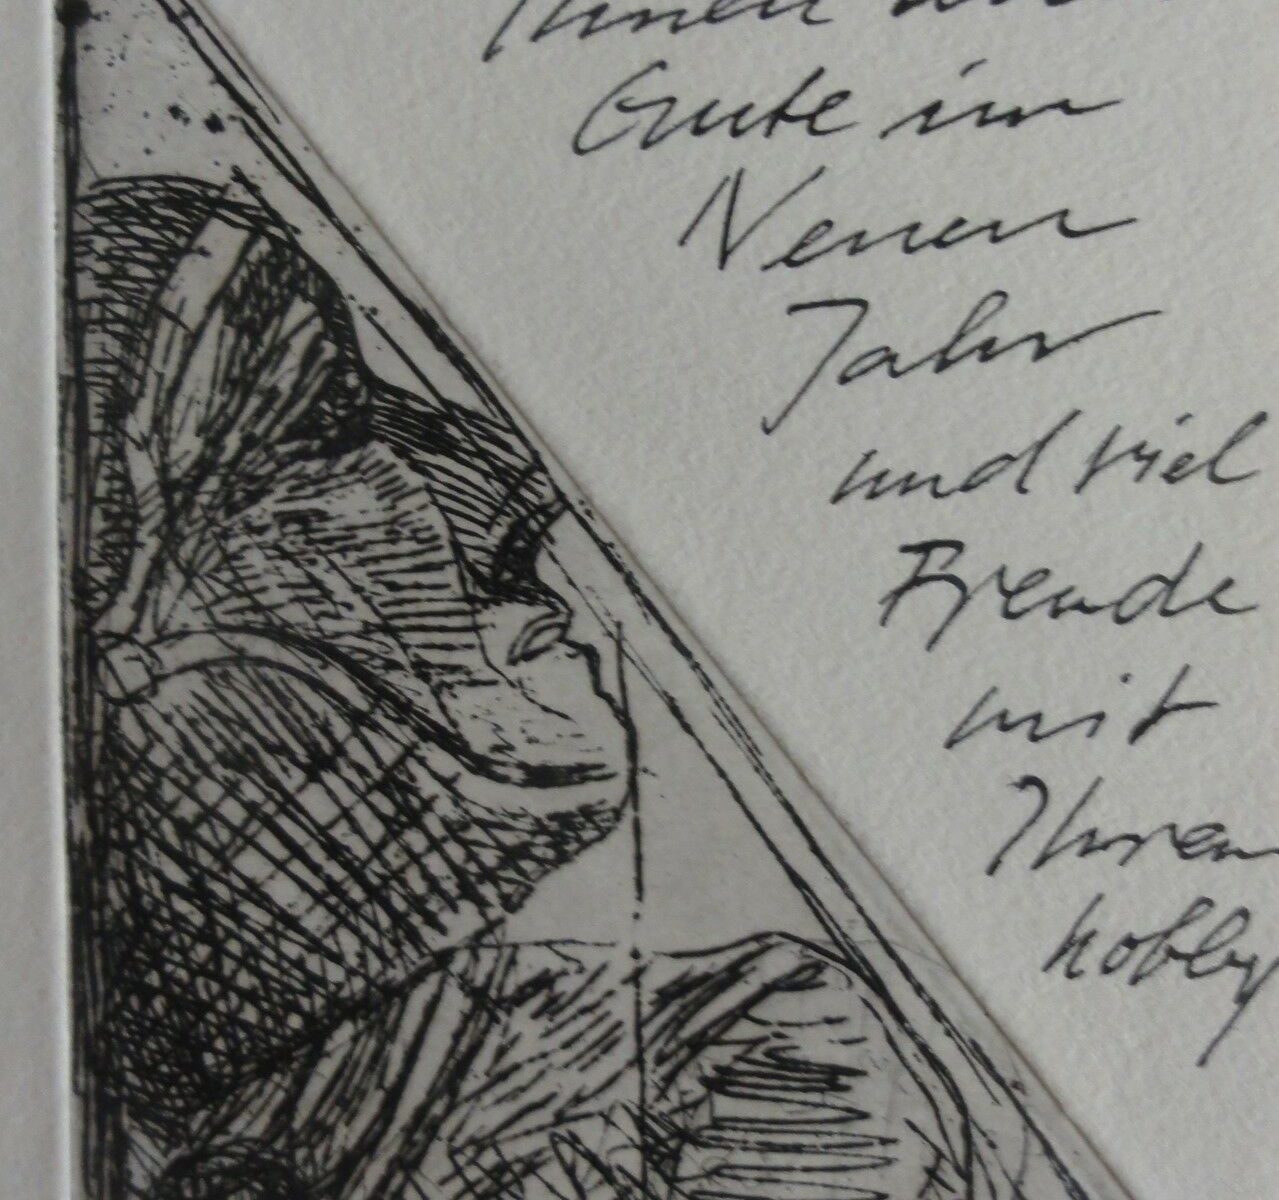 Ihnen alles
Gute im
Neuen
Jahr
und viel
Freude
mit
Ihrem
hobby